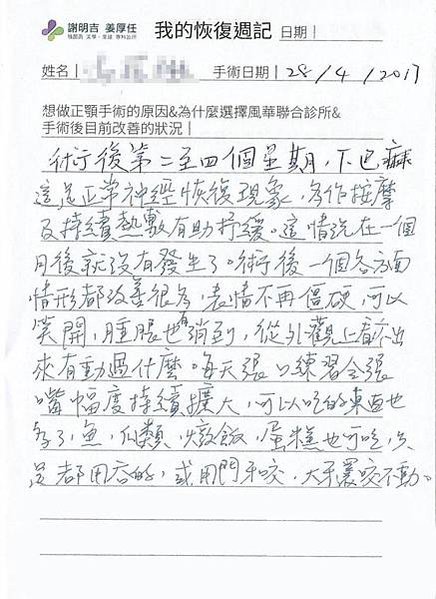 謝明吉 姜厚任 我的恢復週記 日期|
姓名| 手術日期| 28/4/2017
想做正顎手術的原因&為什麼選擇風華聯合診所&
手術後目前改善的狀況|
術後第二至四個星期,下巴麻
這是正常神經恢復現象,多作按摩
及持續熱敷有助抒緩。這情況在一個
月後就沒有發生了。術後一個各方面
情形都改善很多,表情不再僵硬,可以
笑開,腫脹也消到,從外觀上看不出
來有動過什麼。每天張口練習令張
嘴幅度持續擴大,可以吃的東西也
多了,魚,瓜類,燉飯,蛋糕也可吃,只
是都用舌的,或用門牙咬,大牙還咬不動。